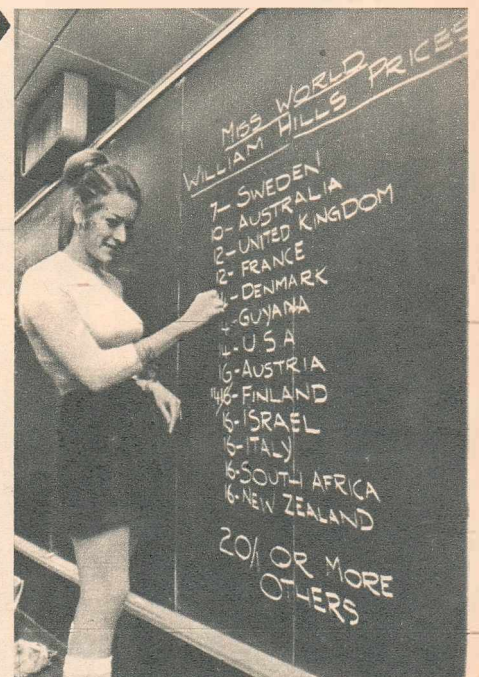 MISS WORLD
WILLIAM HILLS PRICES
7- SWEDEN
10- AUSTRALIA
12- UNITED KINGDOM
12- FRANCE
- DENMARK
4- GUYANA
4- U S A
16- AUSTRIA
14/16- FINLAND
16- ISRAEL
16- ITALY
16- SOUTH AFRICA
16- NEW ZEALAND
20/1 OR MORE
OTHERS